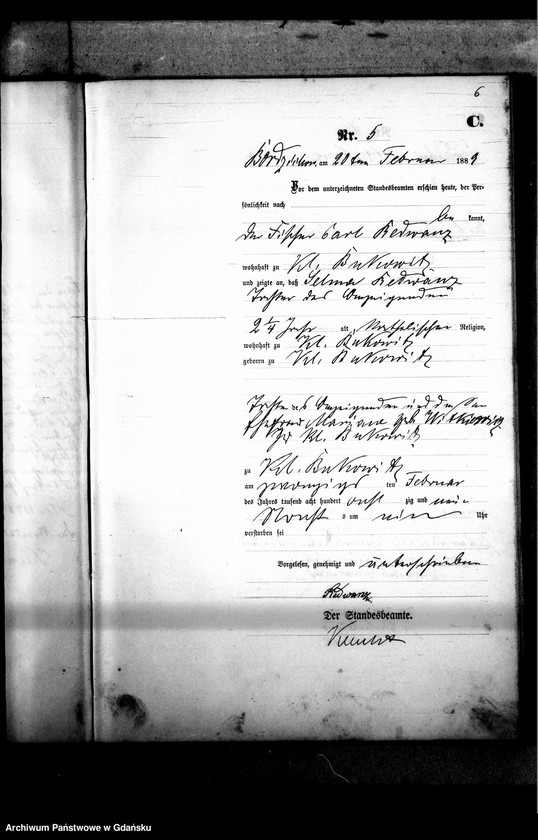 6
C.
Nr. 5
am 20ten Februar 1889
Vor dem unterzeichneten Standesbeamten erschien heute, der Per-
sönlichkeit nach
be kannt,
der Fischer Carl Redwanz
wohnhaft zu Kl. Bukowitz
und zeigte an, daß Selma Redwanz
Tochter des Anzeigenden
2 1/4 Jahr alt, katholischer Religion,
wohnhaft zu Kl. Bukowitz
geboren zu Kl. Bukowitz
Tochter des Anzeigenden und dessen
Ehefrau Mariane geb.
zu Kl. Bukowitz
zu Kl. Bukowitz
am zwanzigs ten Februar
des Jahres tausend acht hundert acht zig und neun
Nacht s um ein Uhr
verstorben sei
Vorgelesen, genehmigt und unterschrieben
Redwanz
Der Standesbeamte.
Archiwum Państwowe w Gdańsku